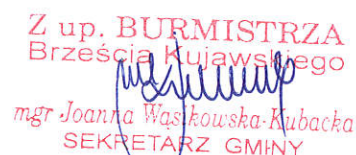 Z up. BURMISTRZA
Brześcia Kujawskiego
mgr Joanna Wąsikowska-Kubacka
SEKRETARZ GMINY